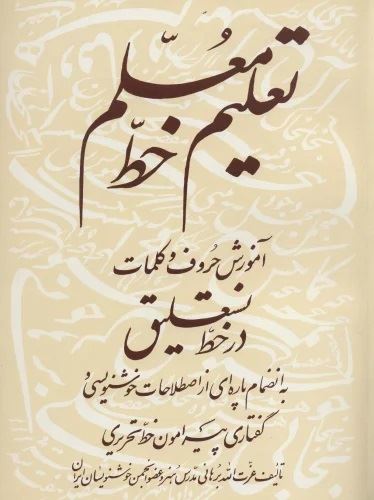 تعلیم خطّ معلّم
آموزش حروف و کلمات
در خطّ نستعلیق
به انضمام پاره‌ای از اصطلاحات خوشنویسی و
گفتاری پیرامون خطّ تحریری
تألیف: عزت الله برهانی مدرس هنر و عضو انجمن خوشنویسان ایران